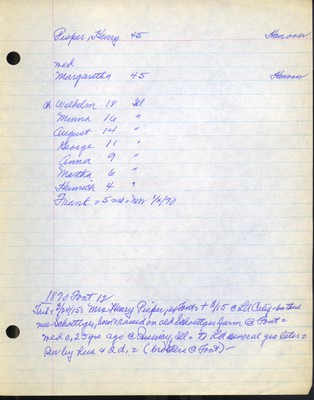 Pieper, Henry 45 Hanover
med
Margaretha 45 Hanover
ch Wilhelm 18 Ill
Minna 16 "
August 14 "
George 11 "
Anna 9 "
Martha 6 "
Heinrich 4 "
Frank = 5 mo =
1870 Font 12
Mrs. Henry Pieper, Font =
nee Schoettger, born & raised on old Schoettger farm @ Font =
med c, 25 yrs ago @ Quincy, Ill = to several yrs later =
Surv by hus & 2 d, = (brothers @ Font) -